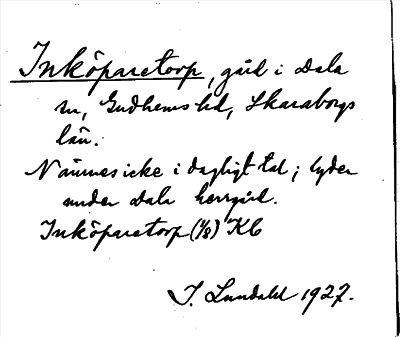 Inköparetorp, gård i Dala
sn, Gudhems hd, Skaraborgs
län.
Nännes icke i dagligt tal; lyder
under Dala herrgård.
Inköparetorp (1/8) Kb
J. Lundahl 1927.